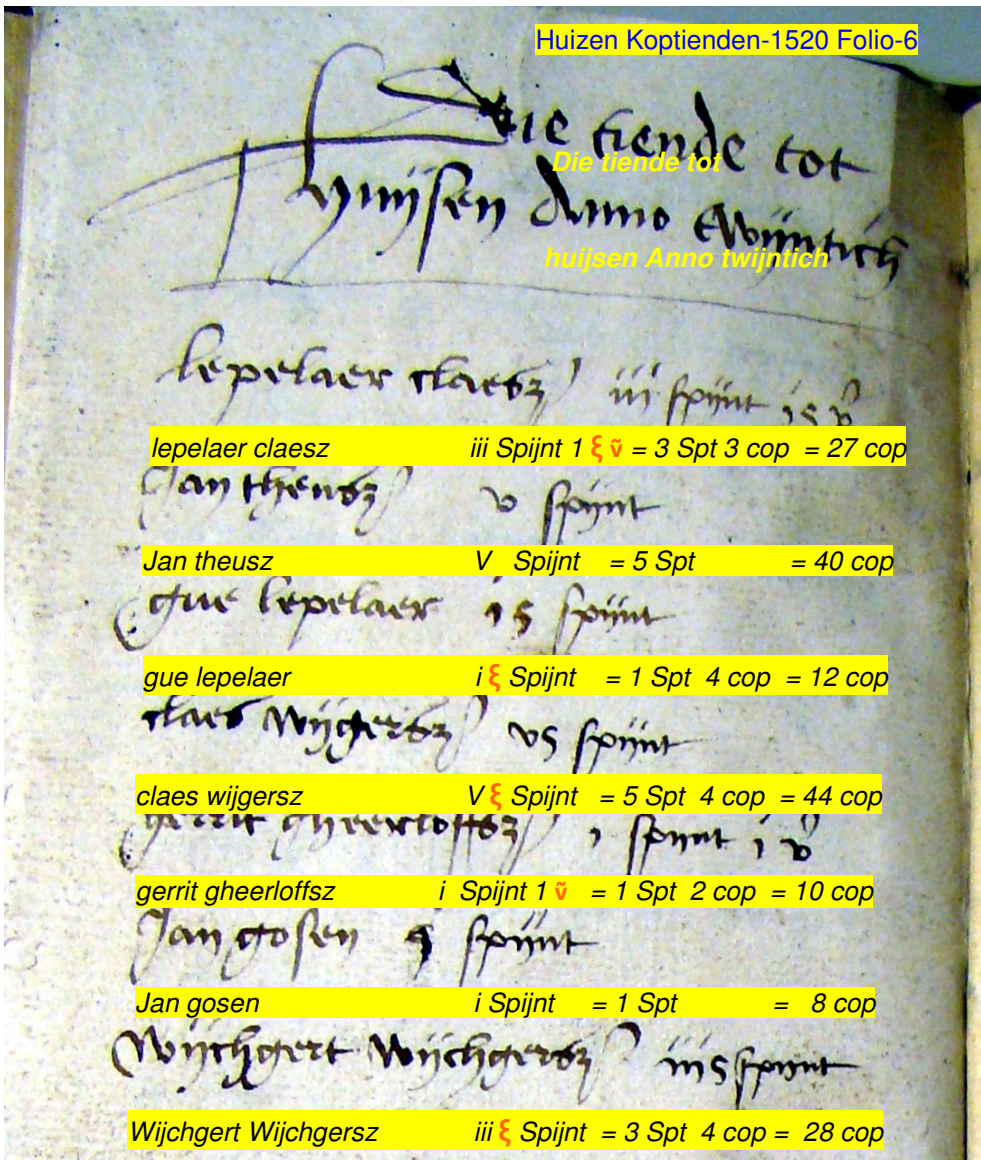 Huizen Koptienden-1520 Folio-6
Die tiende tot
Die tiende tot
huijsen Anno twijntich
huijsen Anno twijntich
lepelaer claesz iii spijnt i ξ ṽ
lepelaer claesz iii Spijnt 1 ξ ṽ = 3 Spt 3 cop = 27 cop
Jan theusz v spijnt
Jan theusz V Spijnt = 5 Spt = 40 cop
gue lepelaer i ξ spijnt
gue lepelaer i ξ Spijnt = 1 Spt 4 cop = 12 cop
claes wijgersz v ξ spijnt
claes wijgersz V ξ Spijnt = 5 Spt 4 cop = 44 cop
gerrit gheerloffsz i spijnt i ṽ
gerrit gheerloffsz i Spijnt 1 ṽ = 1 Spt 2 cop = 10 cop
Jan gosen spijnt
Jan gosen i Spijnt = 1 Spt = 8 cop
Wijchgert Wijchgersz iii ξ spijnt
Wijchgert Wijchgersz iii ξ Spijnt = 3 Spt 4 cop = 28 cop